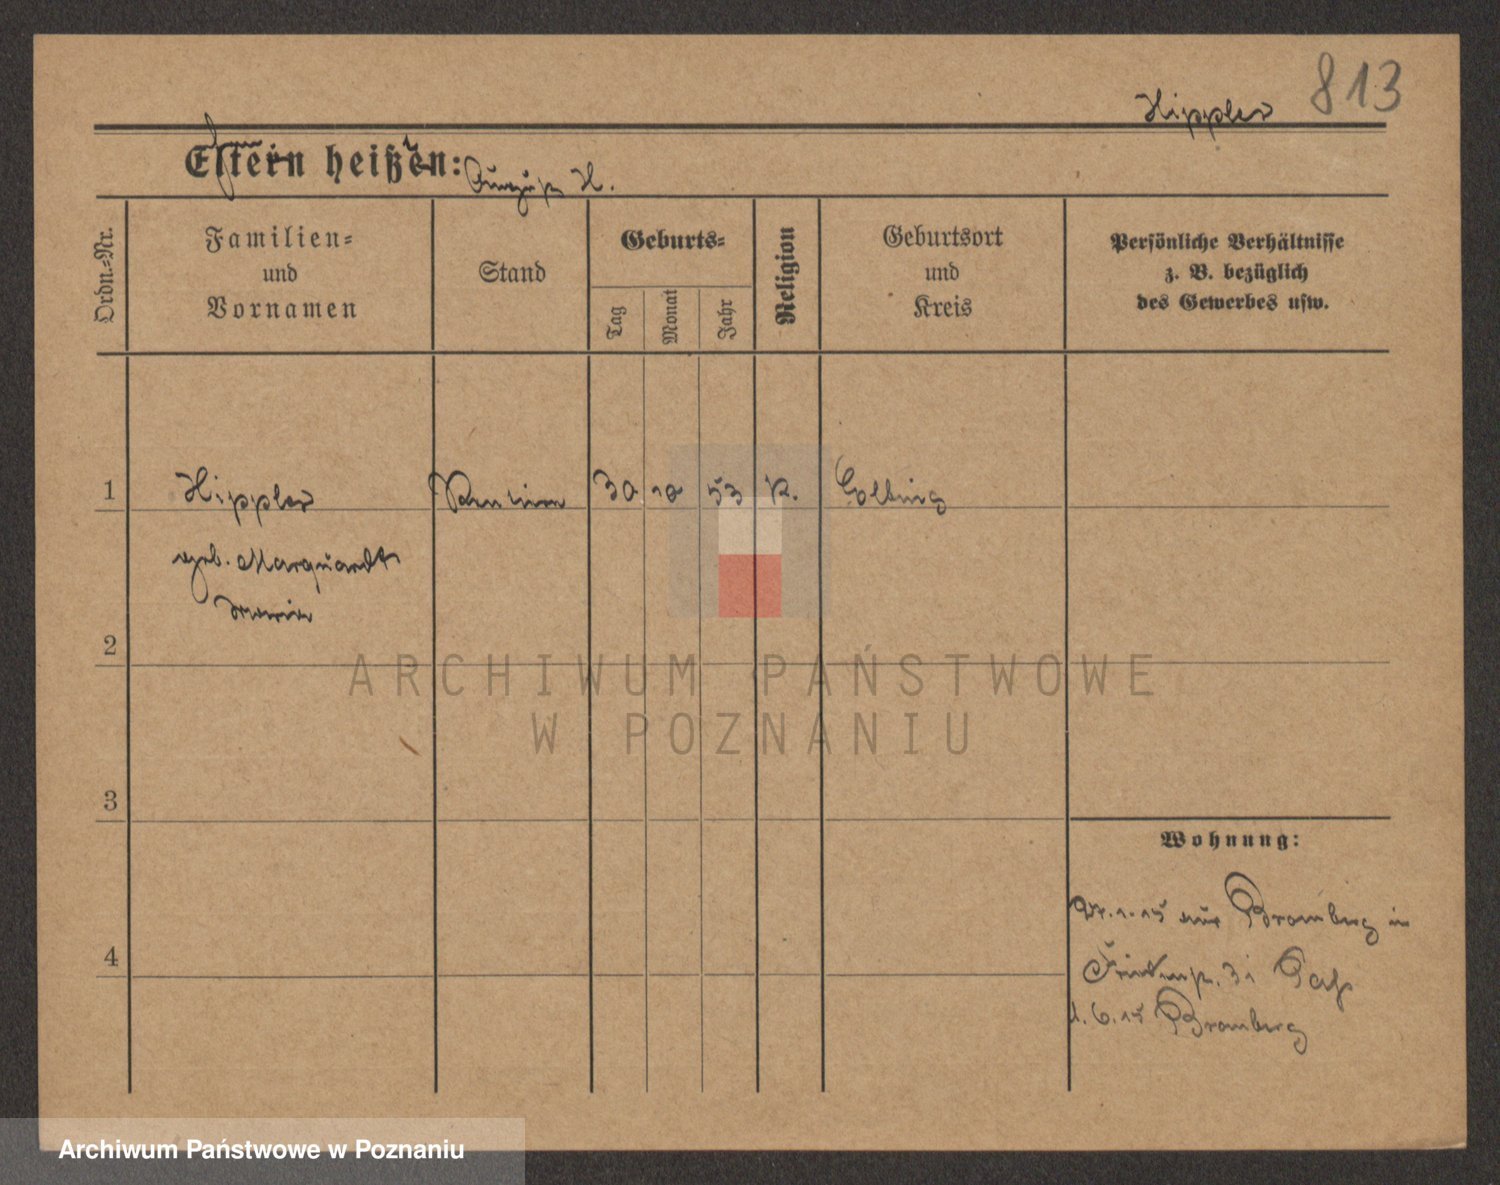 813
Hippler
Eltern heißen:
H.
Ordn.-Nr.
Familien-
und
Vornamen
Stand
Geburts-
Tag
Monat
Jahr
Religion
Geburtsort
und
Kreis
Persönliche Verhältnisse
z. B. bezüglich
des Gewerbes usw.
1
Hippler
30
10
53
K.
Elbing
geb. Marquardt
Maria
2
ARCHIWUM PAŃSTWOWE
W POZNANIU
3
Wohnung:
1.15 Bromberg in
4
31
6.15 Bromberg
Archiwum Państwowe w Poznaniu